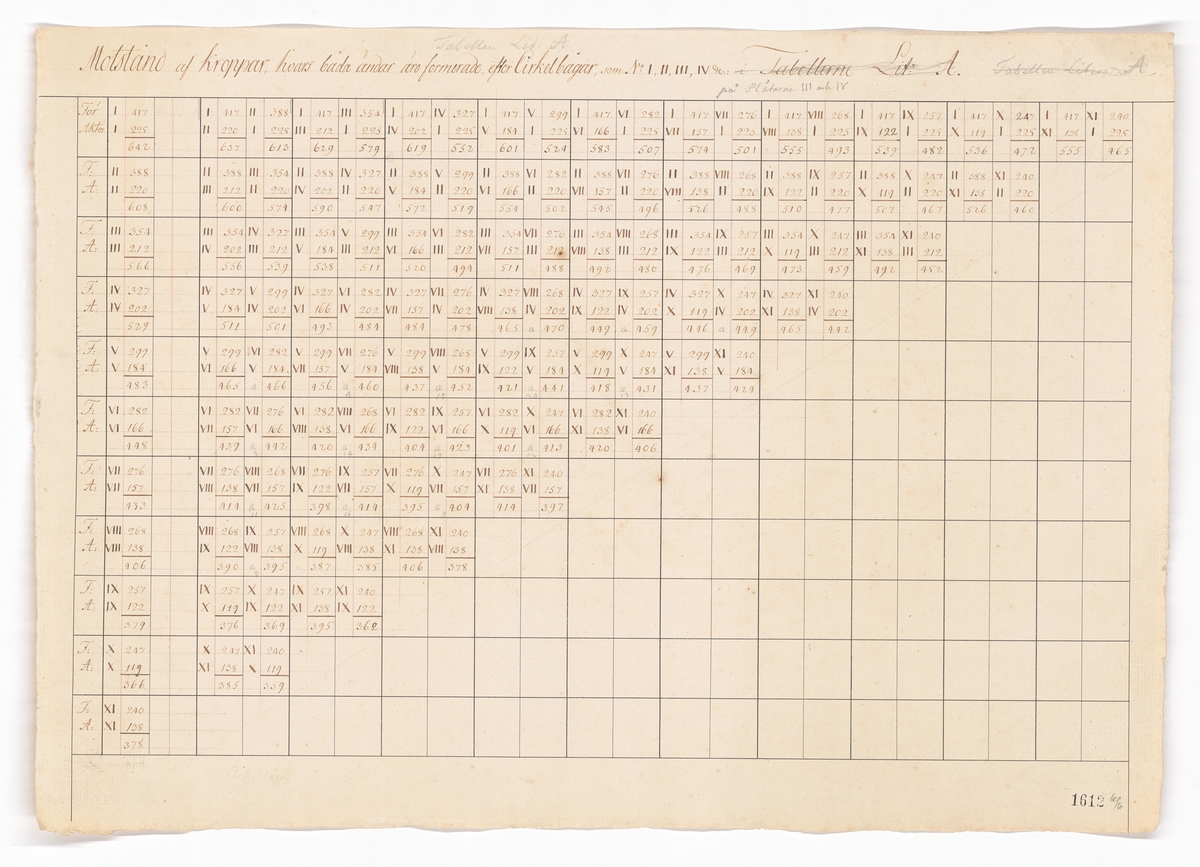 Tabellen Lit. A
Motstånd af Kroppar, hvars båda ändar äro formerade, efter Cirkelbågar, som No I, II, III, IV &c: i Tabellerne Litr A. Tabellen Litera A.
på Plåtarne III och IV
För I 417 I 417 II 388 I 417 III 354 I 417 IV 327 I 417 V 299 I 417 VI 282 I 417 VII 276 I 417 VIII 268 I 417 IX 257 I 417 X 247 I 417 XI 240
Akter I 225 II 220 I 225 III 212 I 225 IV 202 I 225 V 184 I 225 VI 166 I 225 VII 157 I 225 VIII 138 I 225 IX 122 I 225 X 119 I 225 XI 138 I 225
642 637 613 629 579 619 552 601 524 583 507 574 501 555 493 539 482 536 472 555 465
F. II 388 II 388 III 354 II 388 IV 327 II 388 V 299 II 388 VI 282 II 388 VII 276 II 388 VIII 268 II 388 IX 257 II 388 X 247 II 388 XI 240
A: II 220 III 212 II 220 IV 202 II 220 V 184 II 220 VI 166 II 220 VII 157 II 220 VIII 138 II 220 IX 122 II 220 X 119 II 220 XI 138 II 220
608 600 574 590 547 572 519 554 502 545 496 526 488 510 477 507 467 526 460
F: III 354 III 354 IV 327 III 354 V 299 III 354 VI 282 III 354 VII 276 III 354 VIII 268 III 354 IX 257 III 354 X 247 III 354 XI 240
A: III 212 IV 202 III 212 V 184 III 212 VI 166 III 212 VII 157 III 212 VIII 138 III 212 IX 122 III 212 X 119 III 212 XI 138 III 212
566 556 539 538 511 520 494 511 488 492 480 476 469 473 459 492 452
F: IV 327 IV 327 V 299 IV 327 VI 282 IV 327 VII 276 IV 327 VIII 268 IV 327 IX 257 IV 327 X 247 IV 327 XI 240
A: IV 202 V 184 IV 202 VI 166 IV 202 VII 157 IV 202 VIII 138 IV 202 IX 122 IV 202 X 119 IV 202 XI 138 IV 202
529 511 501 493 484 484 478 465 a 470 449 a 459 446 a 449 465 442
F: V 299 V 299 VI 282 V 299 VII 276 V 299 VIII 268 V 299 IX 257 V 299 X 247 V 299 XI 240
A: V 184 VI 166 V 184 VII 157 V 184 VIII 138 V 184 IX 122 V 184 X 119 V 184 XI 138 V 184
483 465 a 466 456 a 460 437 a 452 421 a 441 418 a 431 437 424
F: VI 282 VI 282 VII 276 VI 282 VIII 268 VI 282 IX 257 VI 282 X 247 VI 282 XI 240
A: VI 166 VII 157 VI 166 VIII 138 VI 166 IX 122 VI 166 X 119 VI 166 XI 138 VI 166
448 439 a 442 420 a 434 404 a 423 401 a 413 420 406
F: VII 276 VII 276 VIII 268 VII 276 IX 257 VII 276 X 247 VII 276 XI 240
A: VII 157 VIII 138 VII 157 IX 122 VII 157 X 119 VII 157 XI 138 VII 157
433 414 a 425 398 a 414 395 a 404 414 397
F: VIII 268 VIII 268 IX 257 VIII 268 X 247 VIII 268 XI 240
A: VIII 138 IX 122 VIII 138 X 119 VIII 138 XI 138 VIII 138
406 390 a 395 387 385 406 378
F: IX 257 IX 257 X 247 IX 257 XI 240
A: IX 122 X 119 IX 122 XI 138 IX 122
379 376 369 395 362
F: X 247 X 247 XI 240
A: X 119 XI 138 X 119
366 385 359
F: XI 240
A: XI 138
378
1612